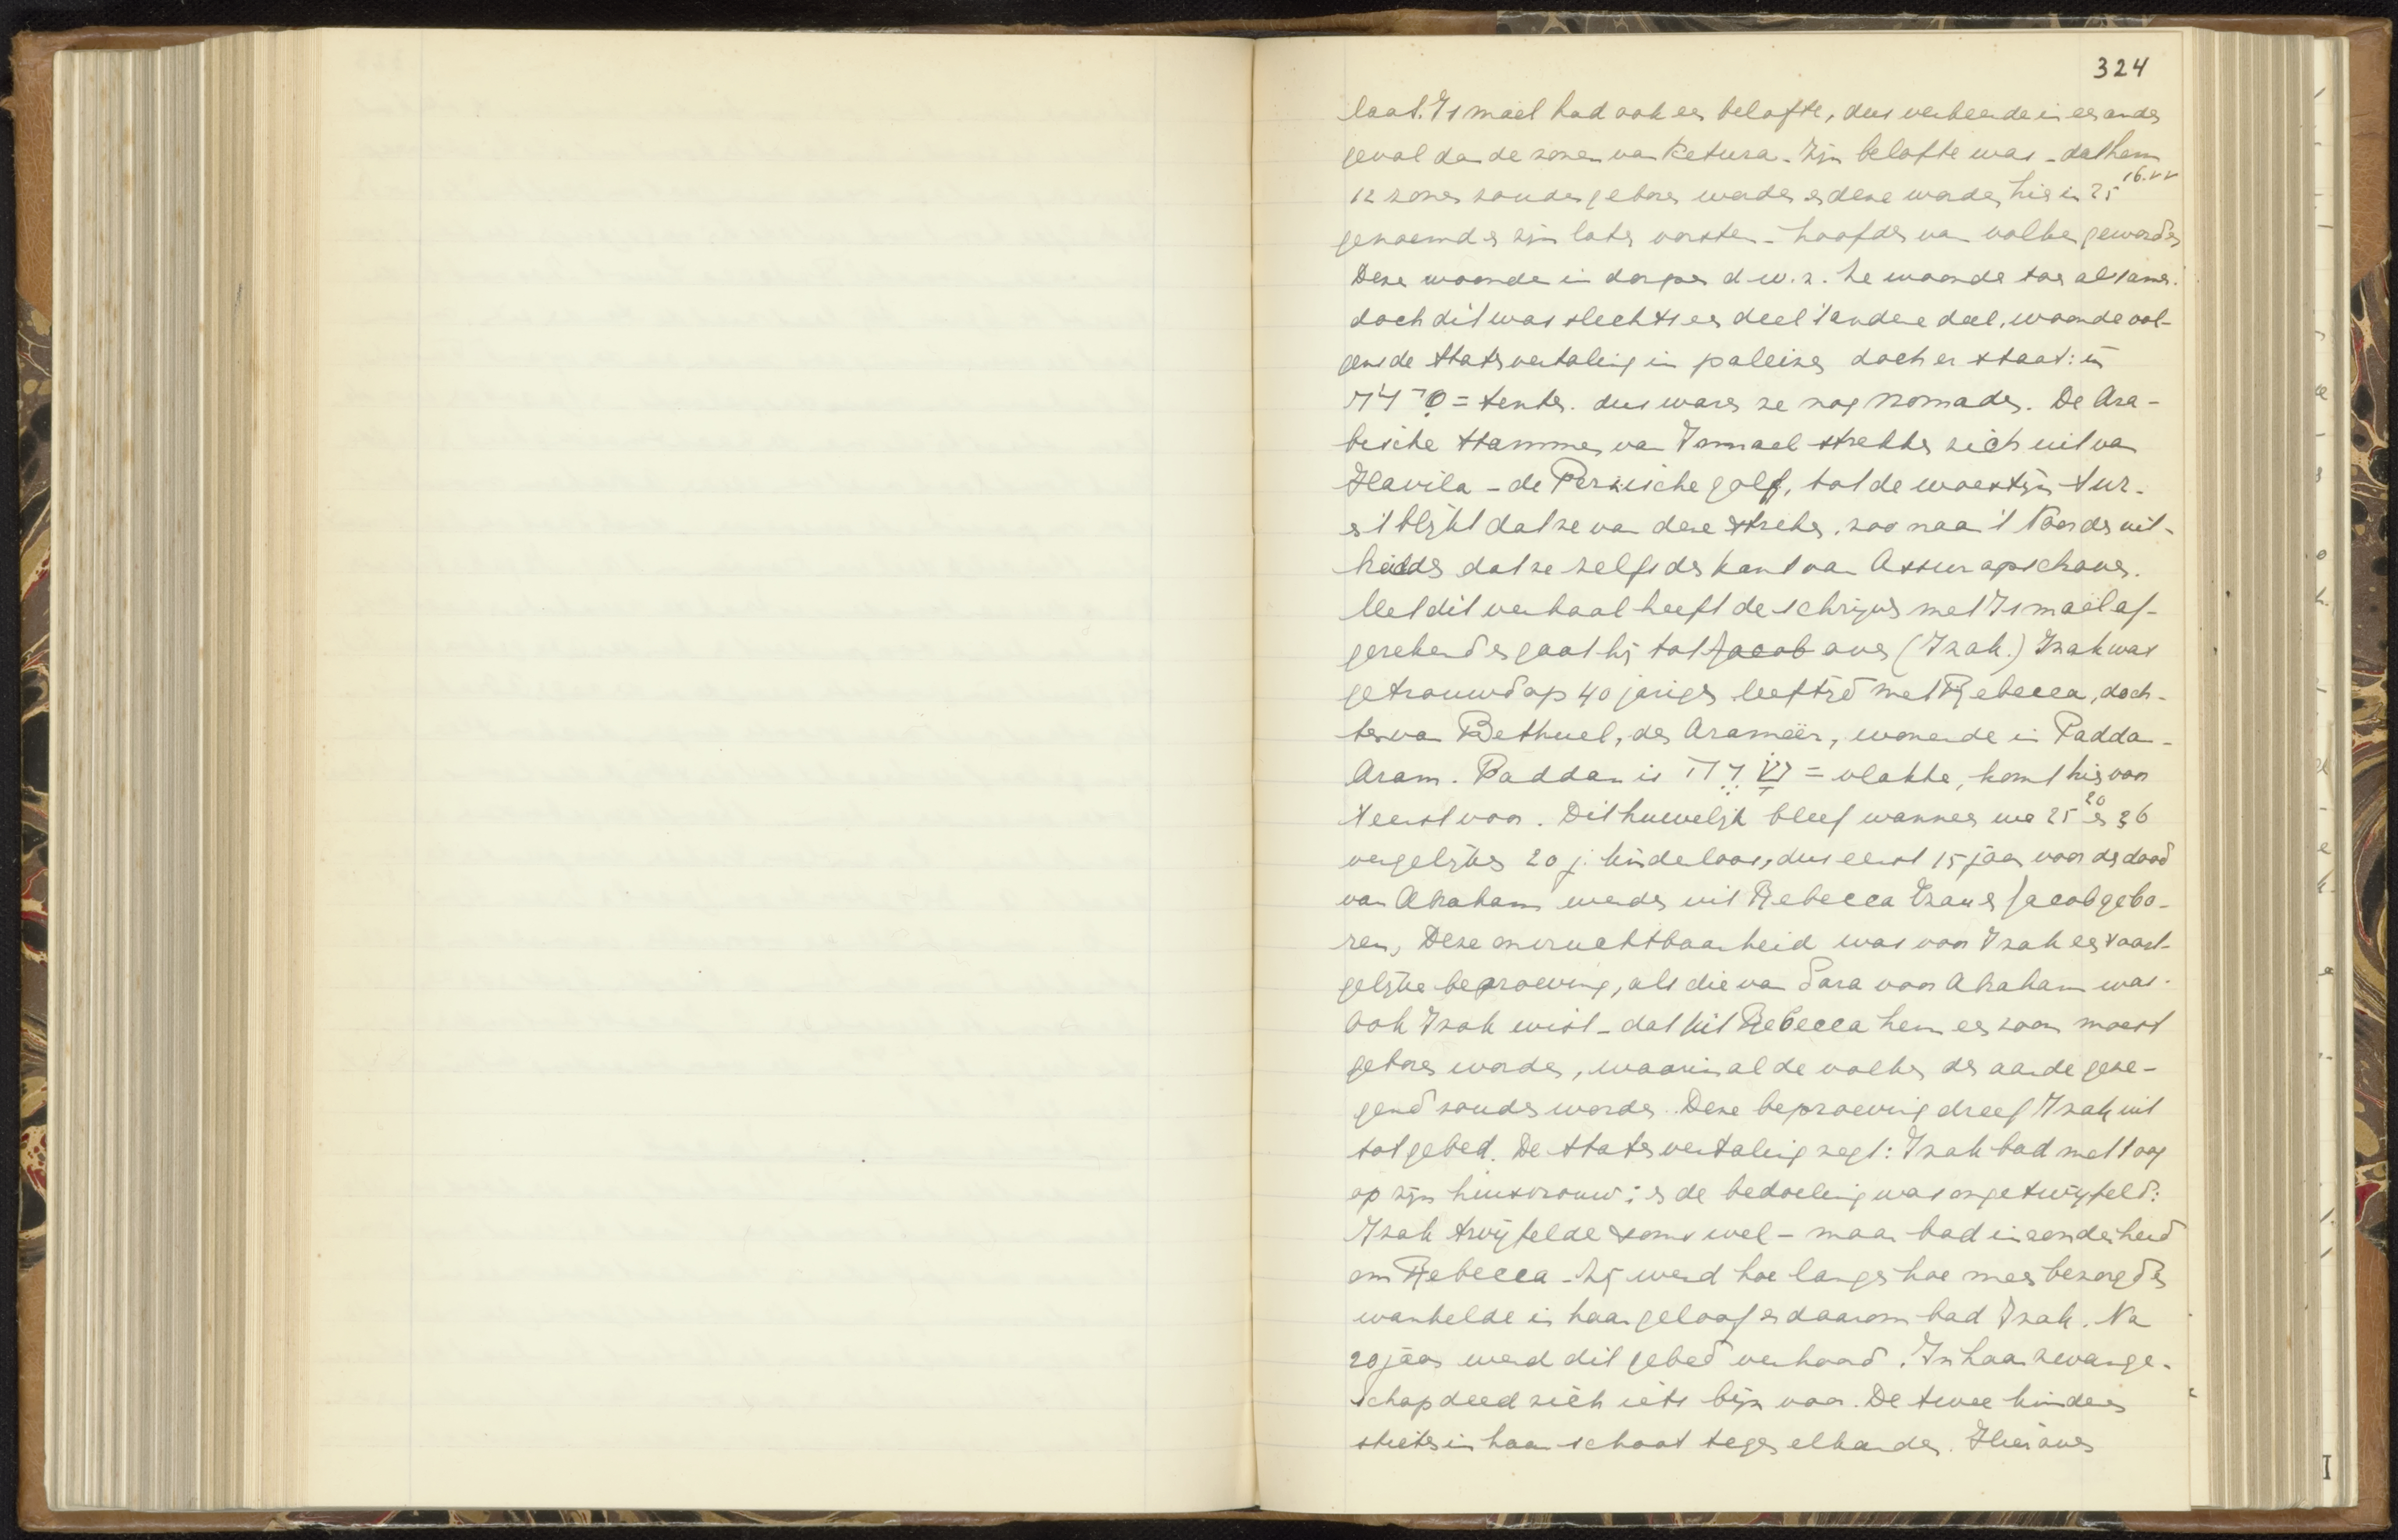 324
laat. Ismaël had ook een belofte, dus verkeerde in een ander
geval dan de zonen van Ketura. Zijn belofte was - dat hem
12 zonen zouden geboren worden en deze worden hier in 25 16.vv
genoemd en zijn later vorsten - hoofden van volken geworden
Deze woonden in dorpen d.w.z. ze woonden daar alsamen.
doch dit was slechts een deel 't andere deel, woonde vol-
gens de Statenvertaling in paleizen doch er staat: in
= tenten. dus waren ze nog nomaden. De Ara-
bische stammen van Ismael strekten zich uit van
Havila - de Perzische golf, tot de woestijn Sur.
en 't blijkt dat ze van deze streken. zoo naar 't Noorden uit-
breidden dat ze zelfs den kant van Assur opschoven.
Met dit verhaal heeft de schrijver met Ismaël af-
gerekend en gaat hij tot Jacob over (Izak.) Izak was
getrouwd op 40 jarigen leeftijd met Rebecca, doch-
ter van Bethuel, den Arameër, wonende in Paddan-
Aram. Paddan is = vlakte, komt hier voor
't eerst voor. Dit huwelijk bleef wanneer we 25 20 en 26
vergelijken 20 j. kinderloos, dus eerst 15 jaar voor den dood
van Abraham werden uit Rebecca Ezau en Jacob gebo-
ren, Deze onvruchtbaarheid was voor Izak een soort-
gelijke beproeving, als die van Sara voor Abraham was.
Ook Izak wist - dat uit Rebecca hem een zoon moest
geboren worden, waarin al de volken der aarde geze-
gend zouden worden. Deze beproeving dreef Izak uit
tot gebed. De Statenvertaling zegt: Izak bad met 't oog
op zijn huisvrouw; en de bedoeling was ongetwijfeld:
Izak twijfelde soms wel - maar bad inzonderheid
om Rebecca - zij werd hoe langer hoe meer bezorgd en
wankelde in haar geloof en daarom bad Izak. Na
20 jaar werd dit gebed verhoord. In haar zwanger-
schap deed zich iets bijz. voor. De twee kinderen
streden in haar schoot tegen elkander. Hierover